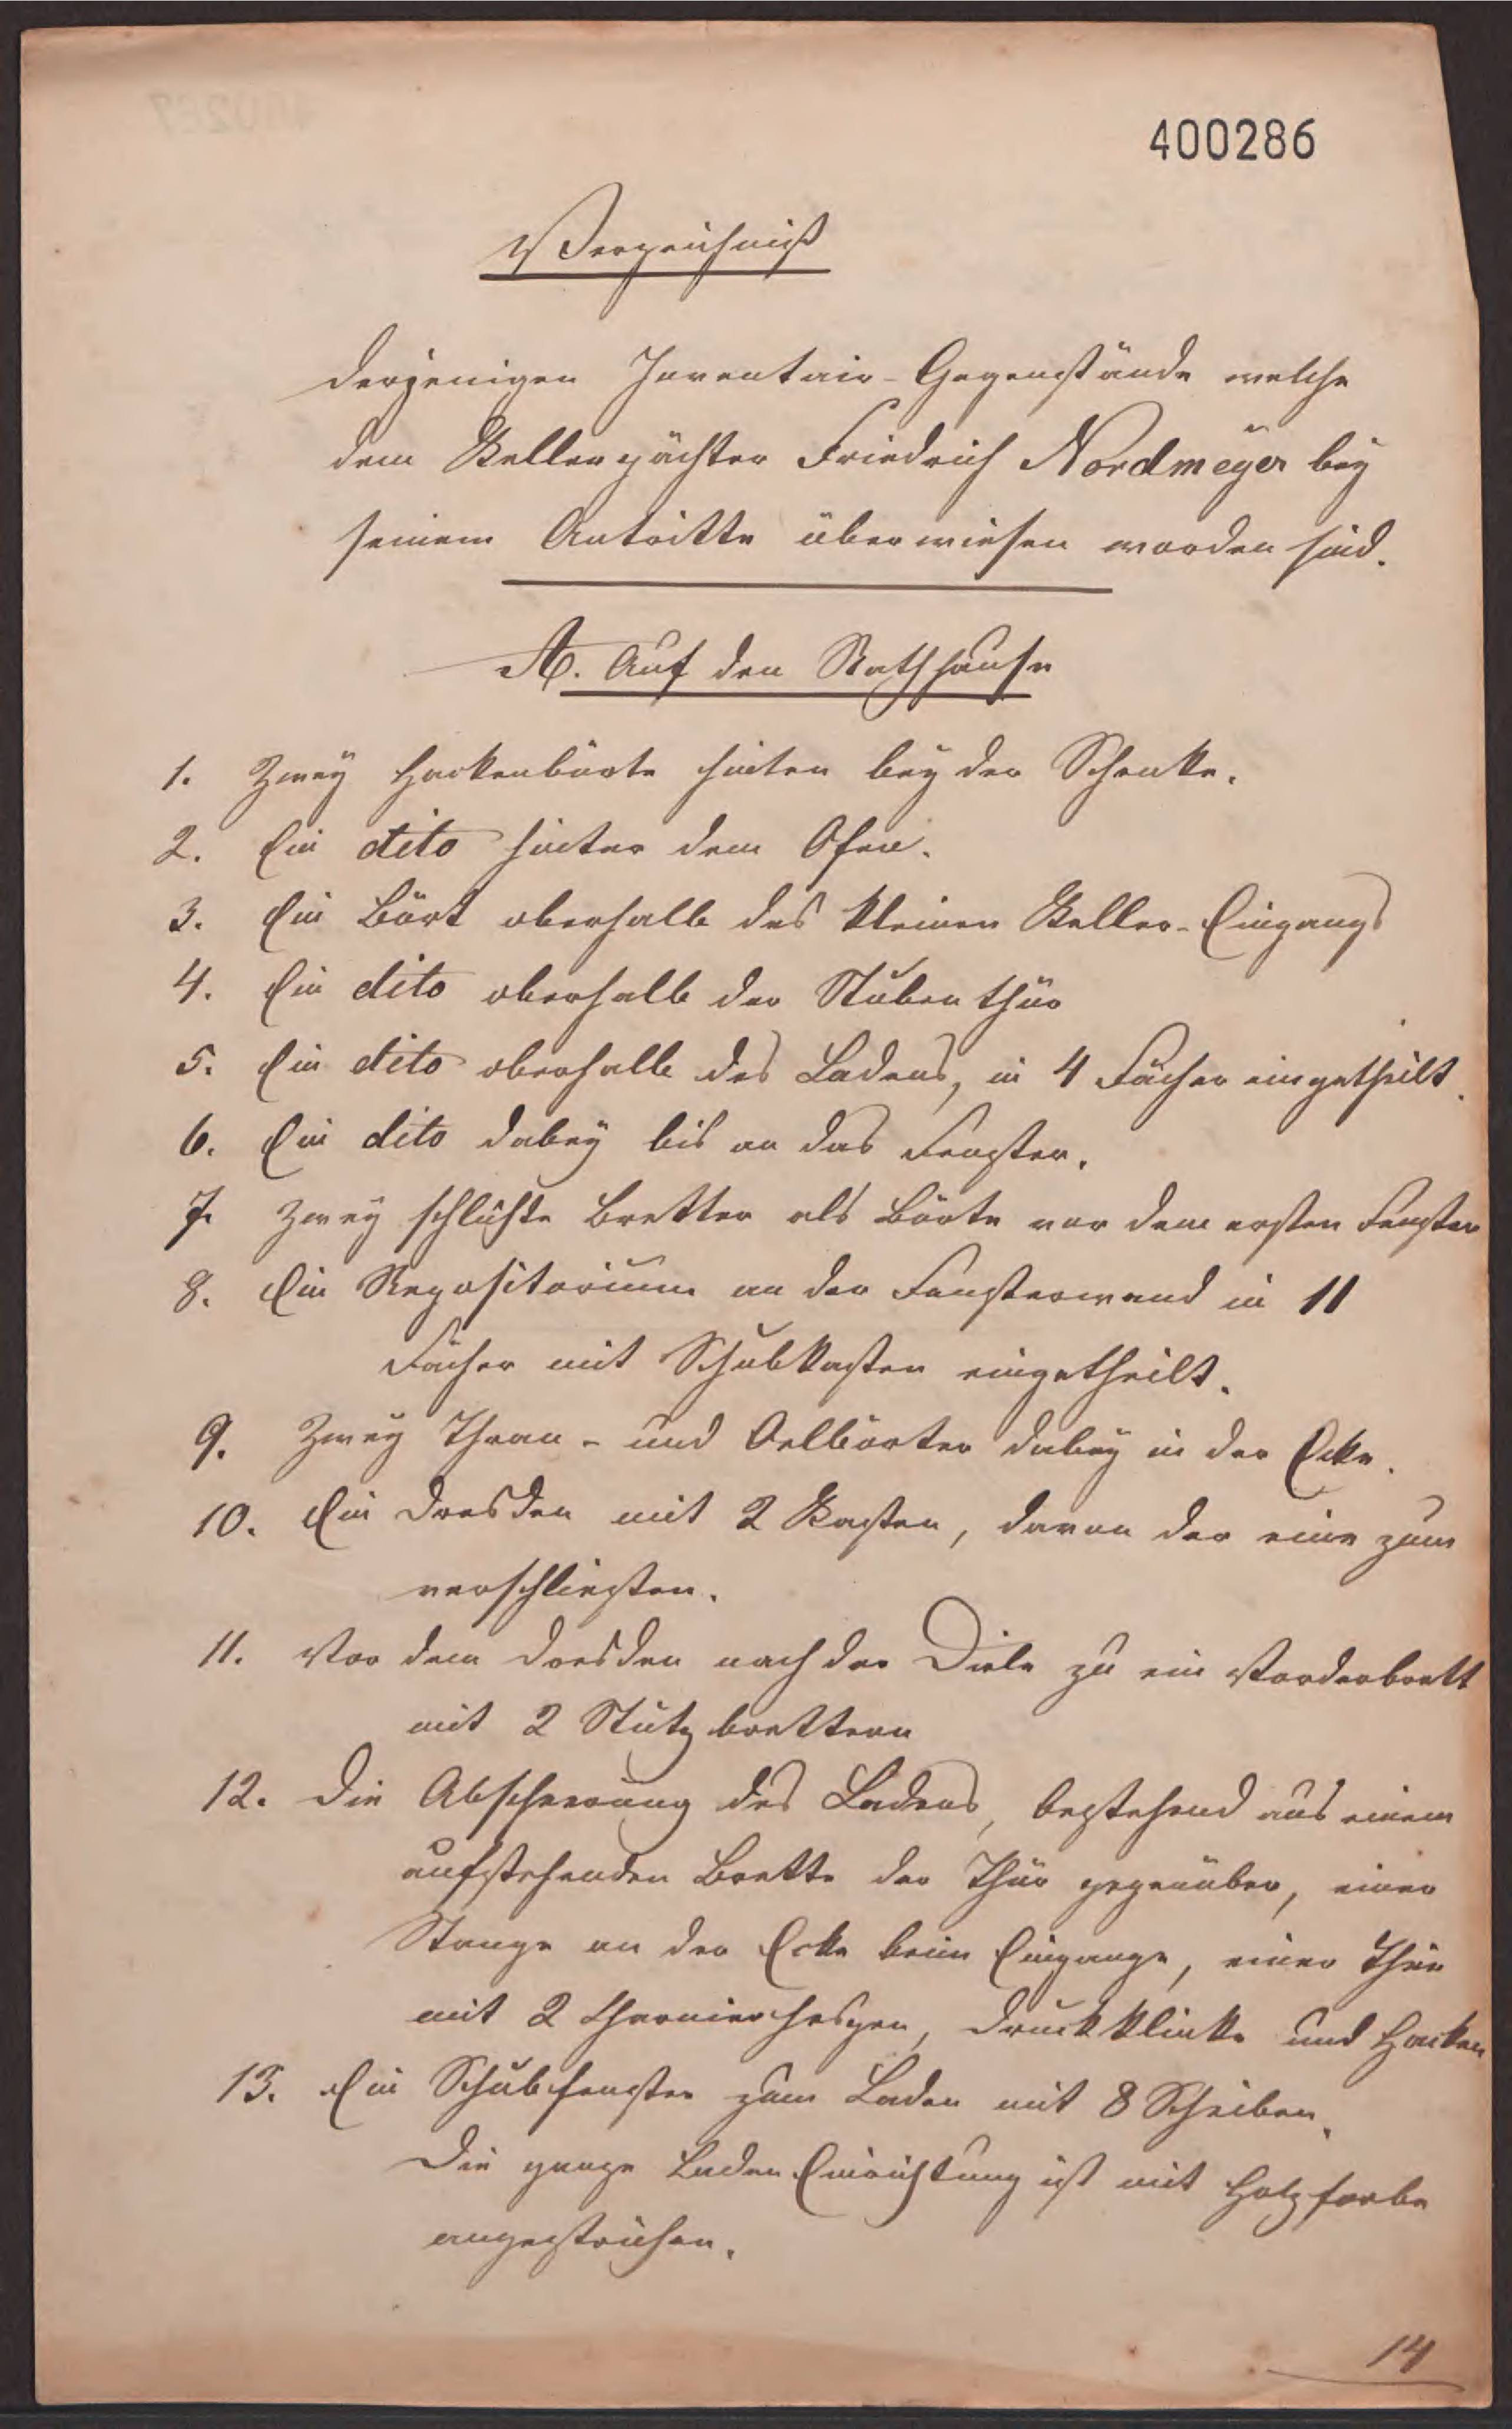 400286
Verzeichniß
derjenigen Inventair-Gegenstände welche
dem Kellerpächter Friedrich Nordmeÿer beÿ
seinem Antritte überwiesen worden sind.
A. Auf den Rathhause
1. Zweÿ Hackenbörte hinten beÿ der Schenke.
2. Ein dito hinter dem Ofen.
3. Ein Bört oberhalb des kleinen Keller-Eingangs
4. Ein dito oberhalb der Stubenthür
5. Ein dito oberhalb des Ladens, in 4 Fächer eingetheilt.
6. Ein dito dabeÿ bis an das Fenster.
7. Zweÿ schlichte Bretter als Börte vor dem ersten Fenster
8. Ein Repositorium an der Fensterwand in 11
Fächer mit Schubkasten eingetheilt.
9. Zweÿ Thran- und Oelbörter dabeÿ in der Ecke.
10. Ein Dresden mit 2 Kasten, davon der eine zum
verschliesten.
11. Vor dem Dresden nach der Diele zu ein Vorderbrett
mit 2 Stützbrettern
12. Die Abscherung des Ladens, bestehend aus einem
aufstehenden Brette der Thür gegenüber, einer
Stange an der Ecke beim Eingange, einer Thür
mit 2 Charnierhespen, Druckklinke und Hacken
13. Ein Schubfenster zum Laden mit 8 Scheiben.
Die ganze Laden Einrichtung ist mit Holzfarbe
angestrichen.
14